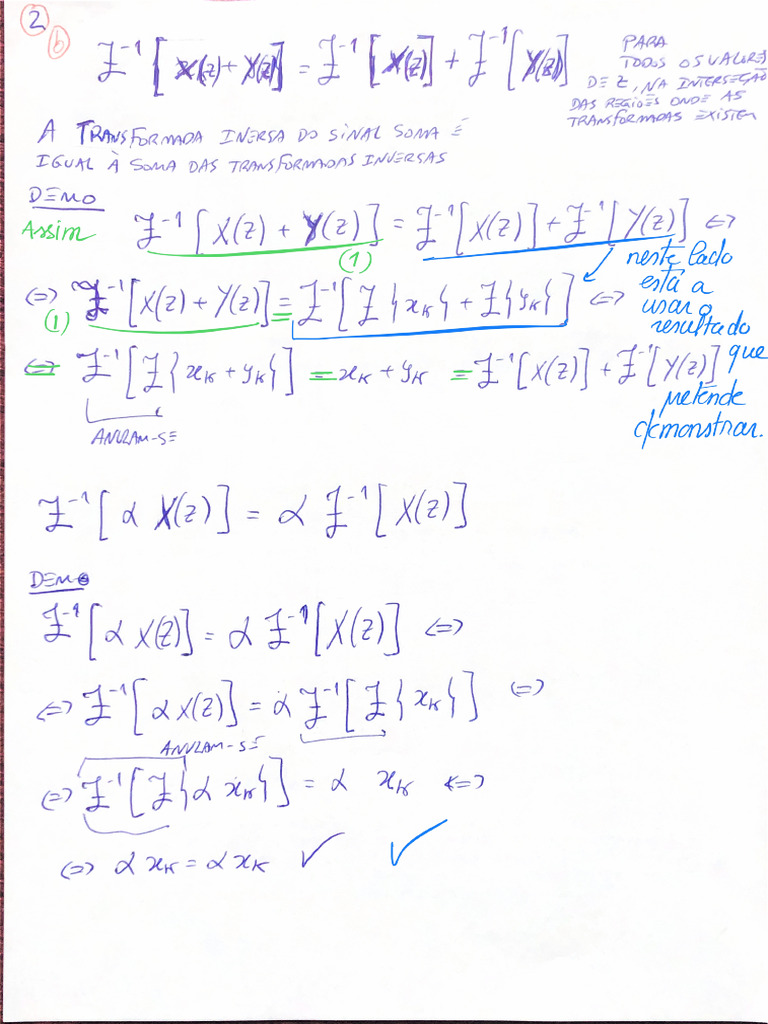 2
b
Z⁻¹[X(z) + Y(z)] = Z⁻¹[X(z)] + Z⁻¹[Y(z)]
PARA
TODOS OS VALORES
DE Z, NA INTERSEÇÃO
DAS REGIÕES ONDE AS
TRANSFORMADAS EXISTEM
A TRANSFORMADA INVERSA DO SINAL SOMA É
IGUAL À SOMA DAS TRANSFORMADAS INVERSAS
DEMO
Assim Z⁻¹[X(z) + Y(z)] = Z⁻¹[X(z)] + Z⁻¹[Y(z)] ⇔
(1)
⇔ Z⁻¹[X(z) + Y(z)] = Z⁻¹[Z{xₖ} + Z{yₖ}] ⇔
(1)
neste lado
está a
usar o
resultado
que
pretende
demonstrar.
⇔ Z⁻¹[Z{xₖ + yₖ}] = xₖ + yₖ = Z⁻¹[X(z)] + Z⁻¹[Y(z)]
ANULAM-SE
Z⁻¹[α X(z)] = α Z⁻¹[X(z)]
DEMO
Z⁻¹[α X(z)] = α Z⁻¹[X(z)] ⇔
⇔ Z⁻¹[α X(z)] = α Z⁻¹[Z{xₖ}] ⇔
ANULAM-SE
⇔ Z⁻¹[Z{α xₖ}] = α xₖ ⇔
⇔ α xₖ = α xₖ ✓ ✓